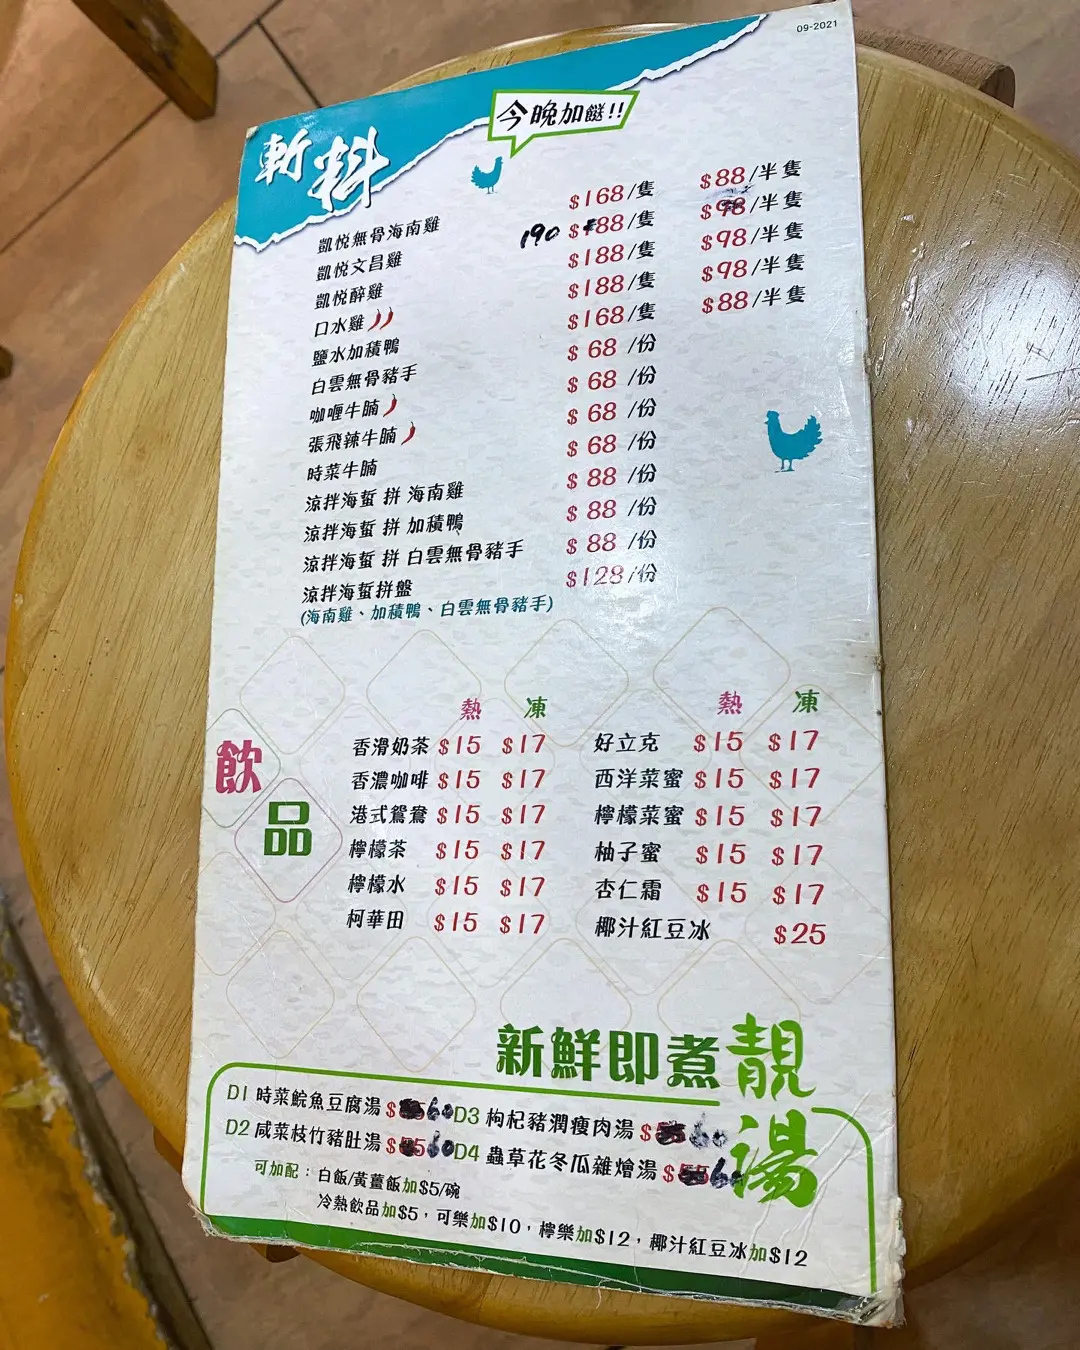 09-2021
斬料
今晚加餸!!
凱悦無骨海南雞 $168/隻 $88/半隻
凱悦文昌雞 190 $188/隻 $98/半隻
凱悦醉雞 $188/隻 $98/半隻
口水雞 $188/隻 $98/半隻
鹽水加積鴨 $168/隻 $88/半隻
白雲無骨豬手 $68/份
咖喱牛腩 $68/份
張飛辣牛腩 $68/份
時菜牛腩 $68/份
涼拌海蜇 拼 海南雞 $88/份
涼拌海蜇 拼 加積鴨 $88/份
涼拌海蜇 拼 白雲無骨豬手 $88/份
涼拌海蜇拼盤 $128/份
(海南雞、加積鴨、白雲無骨豬手)
飲品
熱 凍
香滑奶茶 $15 $17
香濃咖啡 $15 $17
港式鴛鴦 $15 $17
檸檬茶 $15 $17
檸檬水 $15 $17
柯華田 $15 $17
熱 凍
好立克 $15 $17
西洋菜蜜 $15 $17
檸檬菜蜜 $15 $17
柚子蜜 $15 $17
杏仁霜 $15 $17
椰汁紅豆冰 $25
新鮮即煮靚湯
D1 時菜鯇魚豆腐湯 $ 60 D3 枸杞豬潤瘦肉湯 $ 60
D2 咸菜枝竹豬肚湯 $ 60 D4 蟲草花冬瓜雜燴湯 $ 60
可加配：白飯/黃薑飯加$5/碗
冷熱飲品加$5，可樂加$10，檸樂加$12，椰汁紅豆冰加$12